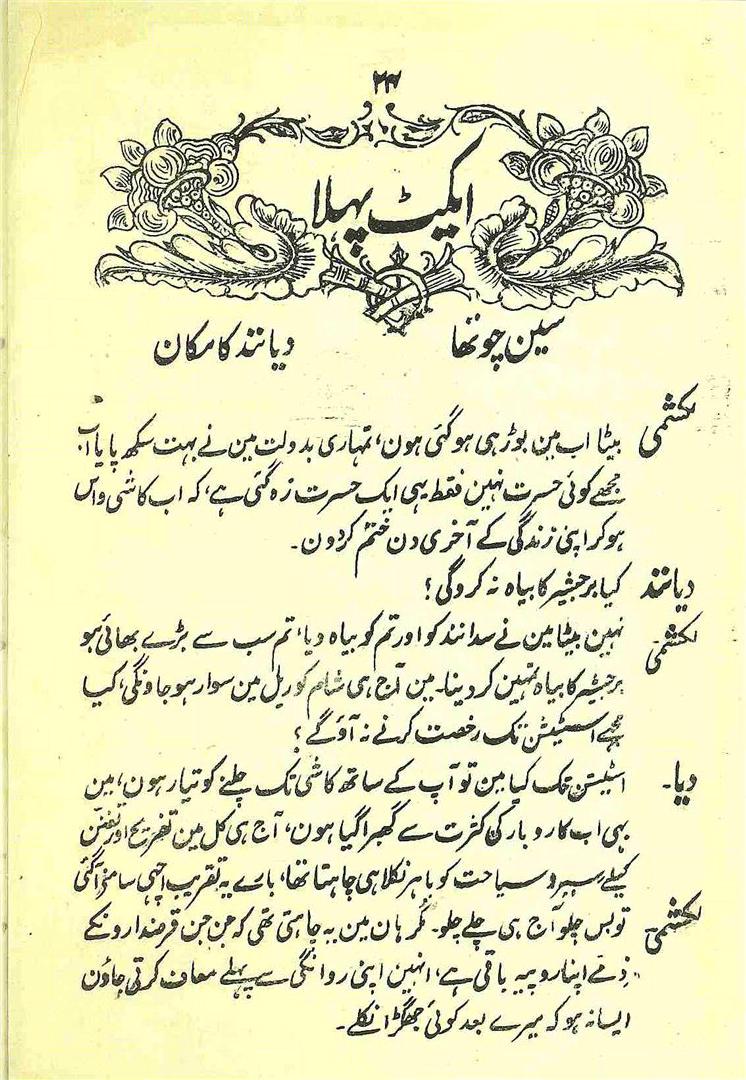 ۲۴
ایکٹ پہلا
سین چوتھا دیانند کا مکان
لکشمی بیٹا اب مین بوڑہی ہوگئی ہون، تمہاری بدولت مین نے بہت سکھ پایا اب
مجھے کوئی حسرت نہین فقط یہی ایک حسرت رہ گئی ہے، کہ اب کاشی واس
ہوکر اپنی زندگی کے آخری دن ختم کردون۔
دیانند کیا برجیشر کا بیاہ نہ کروگی؟
لکشمی نہین بیٹا مین نے سدانند کو اور تم کو بیاہ دیا، تم سب سے بڑے بھائی ہو
برجیشر کا بیاہ تمہین کردینا۔ مین آج ہی شام کو ریل مین سوار ہو جاونگی، کیا
مجھے اسٹیشن تک رخصت کرنے نہ آؤگے؟
دیا۔ اسٹیشن تک کیا مین تو آپ کے ساتھ کاشی تک چلنے کو تیار ہون، مین
بہی اب کاروبار کی کثرت سے گھبرا گیا ہون، آج ہی کل مین تفریح اور تفنن
کیلئے سیر و سیاحت کو باہر نکلا ہی چاہتا تھا، بارے یہ تقریب اچہی سامنے آگئی
لکشمی تو بس چلو آج ہی چلے چلو۔ مگر ہان مین یہ چاہتی تھی کہ جن جن قرضدارونکے
ذمے اپنا روپیہ باقی ہے، انہین اپنی روانگی سے پہلے معاف کرتی جاؤن
ایسا نہ ہو کہ میرے بعد کوئی جھگڑا نکلے۔